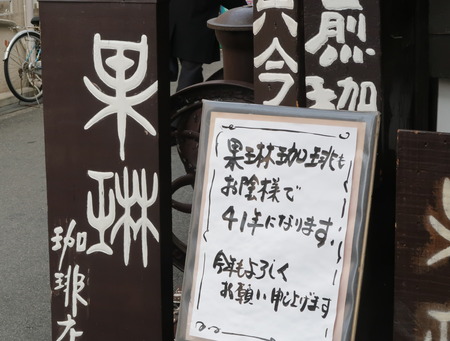 果琳
珈琲店
六今
煎珈
果琳珈琲店も
お陰様で
41年になります。
今年もよろしく
お願い申し上げます